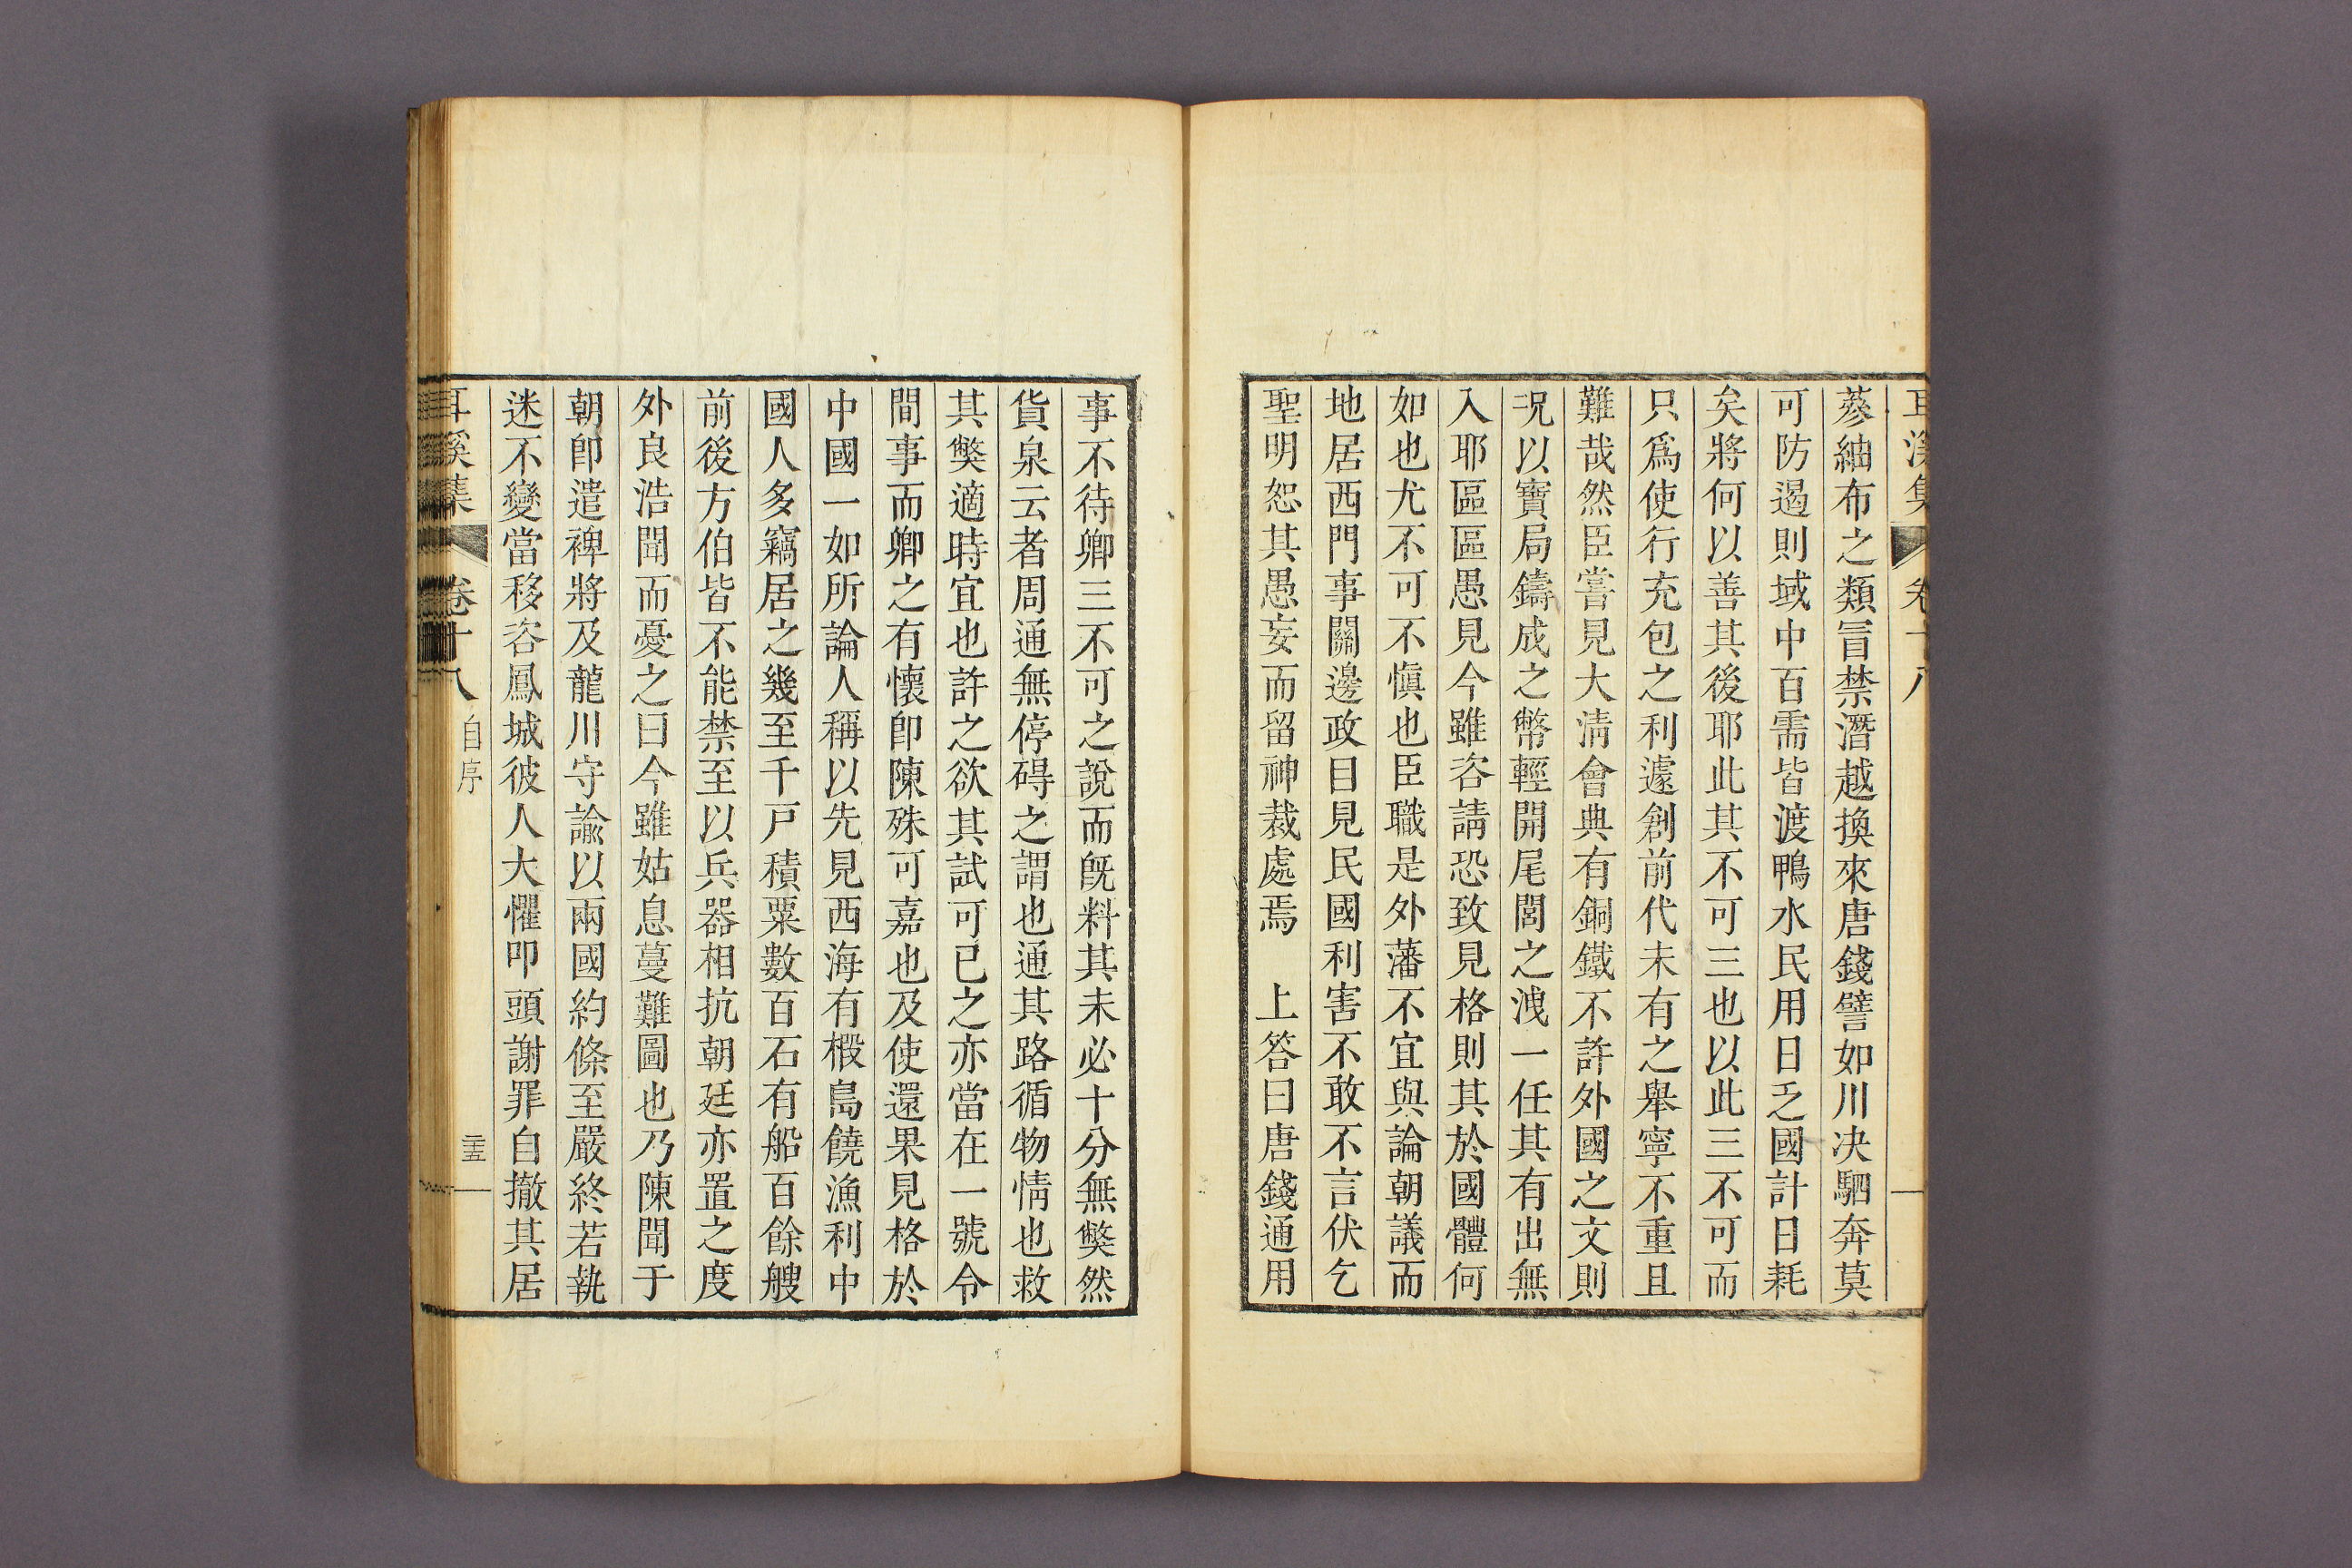 耳溪集 卷十八
蔘紬布之類冒禁潛越換來唐錢譬如川决駟奔莫
可防遏則域中百需皆渡鴨水民用日乏國計日耗
矣將何以善其後耶此其不可三也以此三不可而
只爲使行充包之利遽創前代未有之舉寧不重且
難哉然臣嘗見大淸會典有銅鐵不許外國之文則
况以寶局鑄成之幣輕開尾閭之洩一任其有出無
入耶區區愚見今雖咨請恐致見格則其於國體何
如也尤不可不愼也臣職是外藩不宜與論朝議而
地居西門事關邊政目見民國利害不敢不言伏乞
聖明恕其愚妄而留神裁處焉 上答曰唐錢通用
事不待卿三不可之說而旣料其未必十分無獘然
貨泉云者周通無停碍之謂也通其路循物情也救
其獘適時宜也許之欲其試可已之亦當在一號令
間事而卿之有懷卽陳殊可嘉也及使還果見格於
中國一如所論人稱以先見西海有椴島饒漁利中
國人多竊居之幾至千戶積粟數百石有船百餘艘
前後方伯皆不能禁至以兵器相抗朝廷亦置之度
外良浩聞而憂之曰今雖姑息蔓難圖也乃陳聞于
朝卽遣裨將及龍川守諭以兩國約條至嚴終若執
迷不變當移咨鳳城彼人大懼叩頭謝罪自撤其居
耳溪集 卷十八 自序 三十五